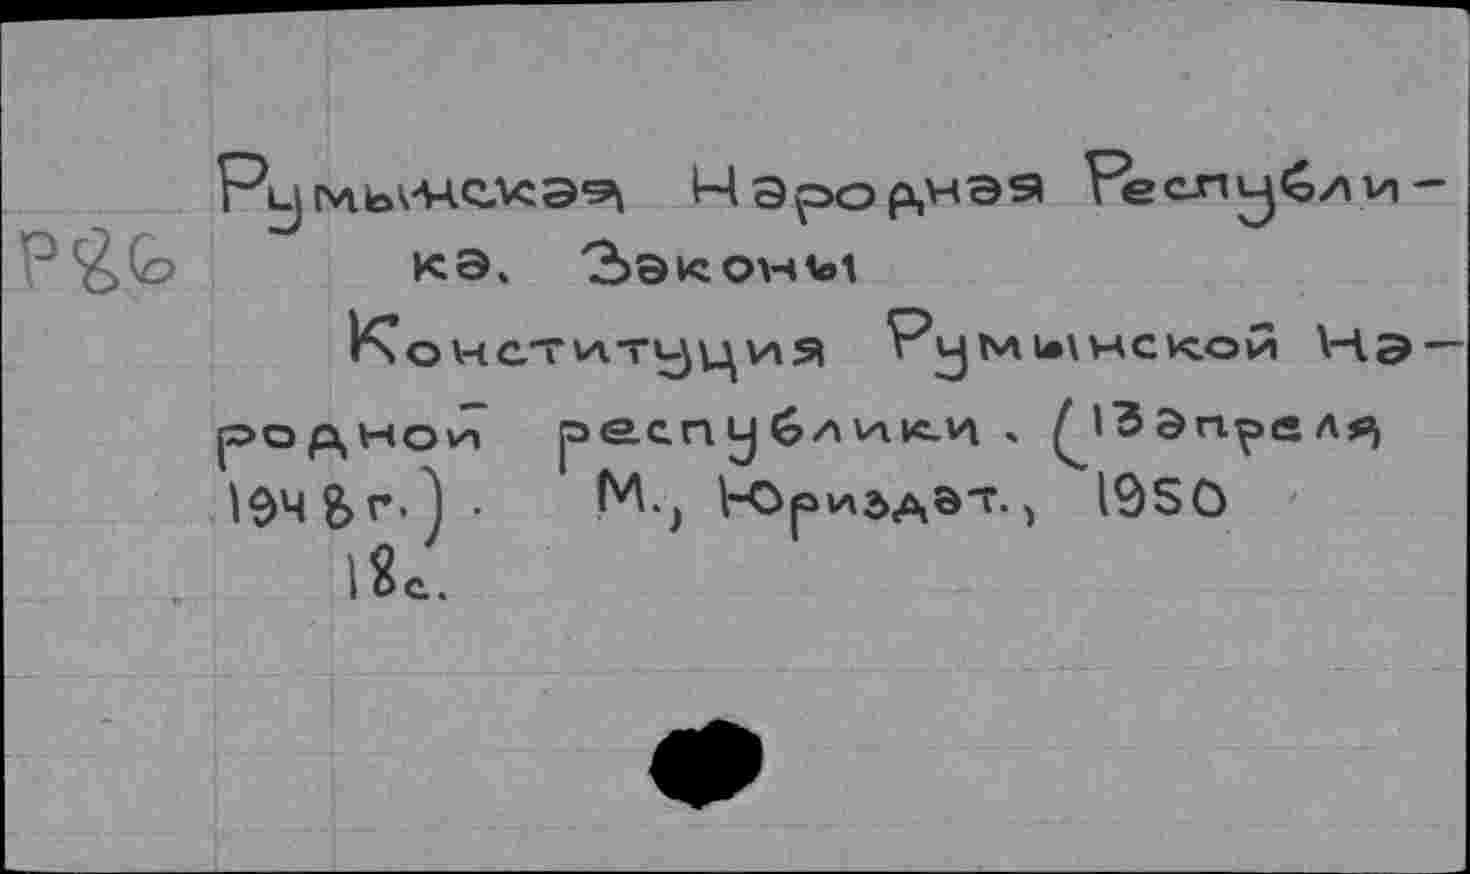 Румынская Народная Республи-
ка. Законы
Конституция Румынской На-
родной республики. (13 апреля
1948 г.). М., Юриздат., 1950
18 с.